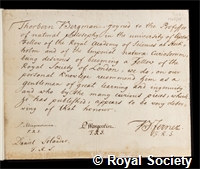 Thorbern Bergman
of natural philosophy in the university of
Fellow of the Royal Academy of Sciences at Stock-
holm and of the Imperial
being desirous of becoming a Fellow of the
Royal Society of London, we do, on our
personal Knowledge recommend him as a
gentleman of great learning and ingenuity
and who by the many curious pieces which
he has published, appears to be very deser-
ving of that honour.
F.R.S.
Daniel Solander
F.R.S.
F.R.S.
© Royal Society